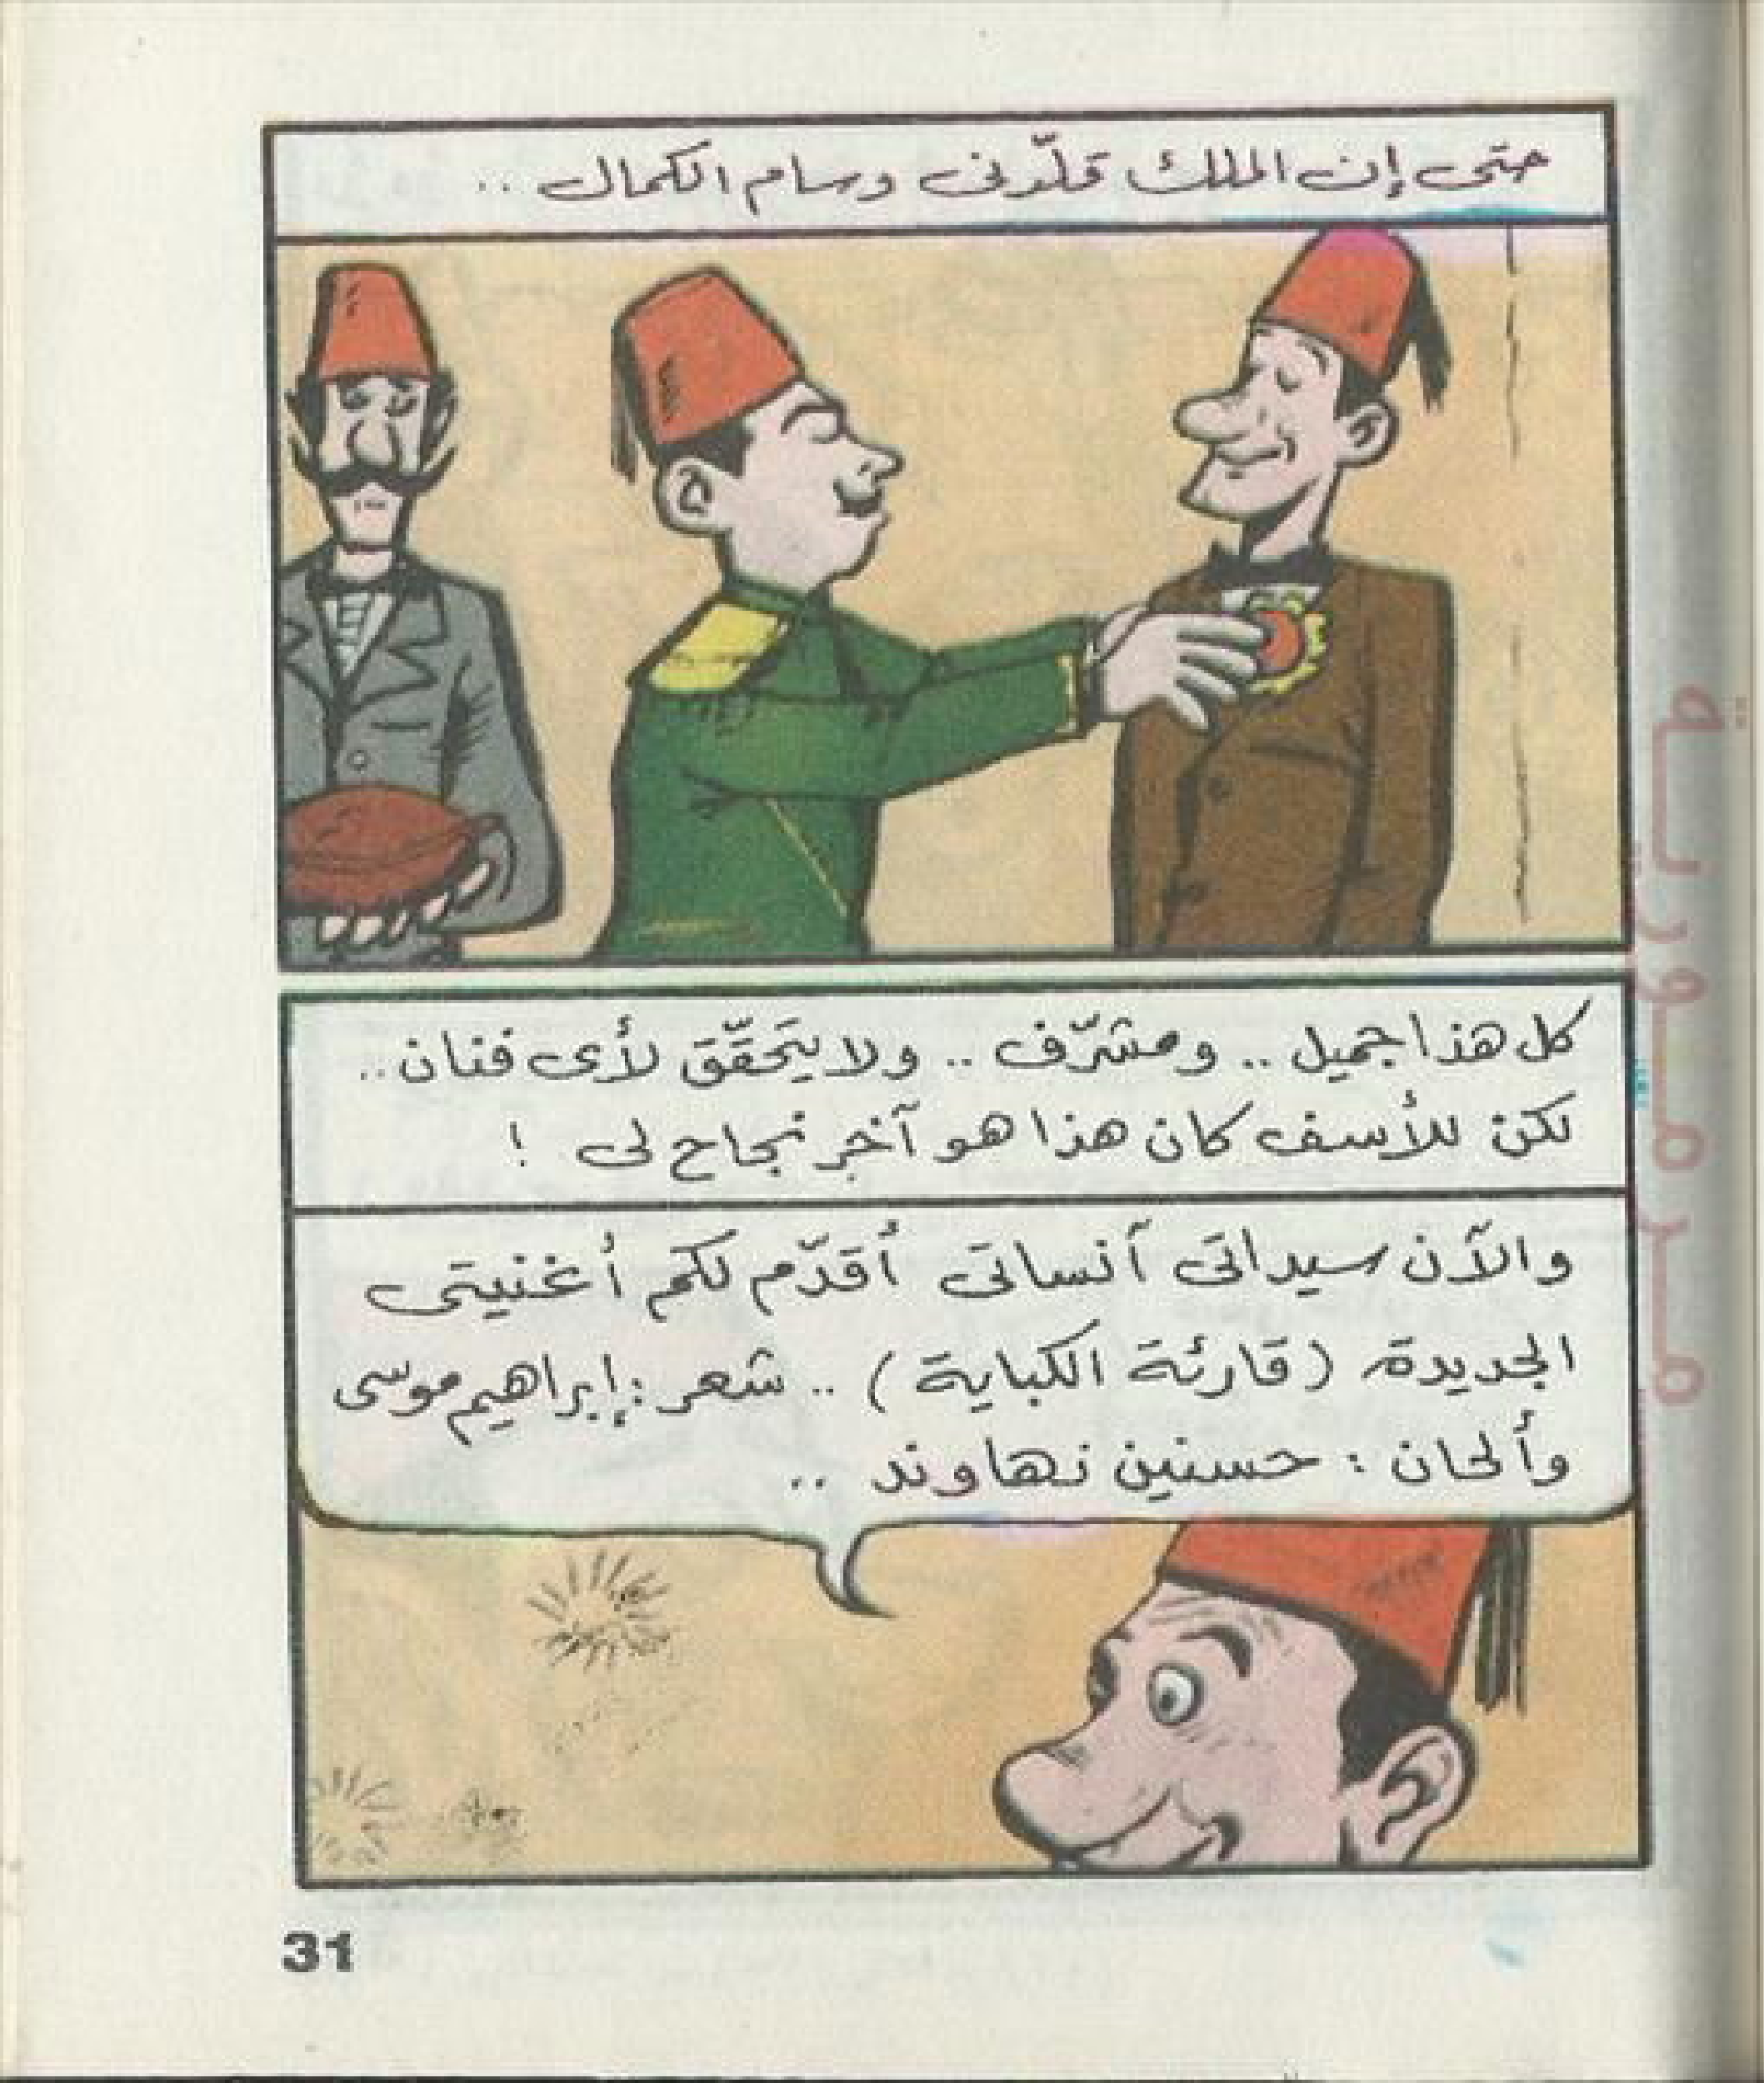 حتى إن الملك قلّدنى وسام الكمال ..
كل هذا جميل .. ومشرّف .. ولا يَتحقّق لأى فنان ..
لكن للأسف كان هذا هو آخر نجاح لى !
والآن سيداتى آنساتى أُقدّم لكم أغنيتى
الجديدة (قارئة الكباية) .. شعر: إبراهيم موسى
وألحان : حسنين نهاوند ..
مرمورية
31